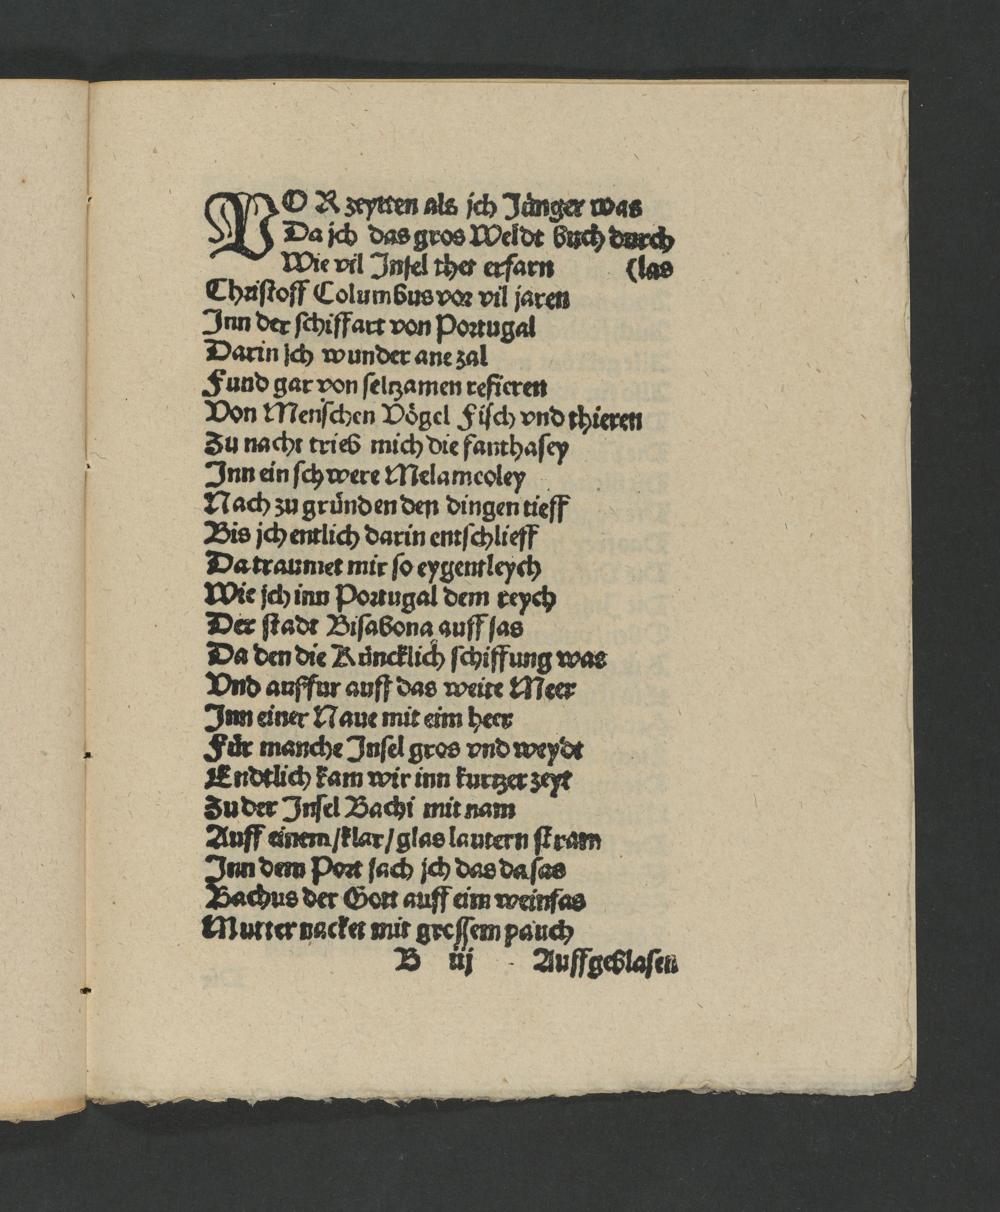 VOR zeytten als jch Jünger was
Da jch das gros Weldt buch durch
Wie vil Jnsel ther erfarn (las
Christoff Columbus vor vil jaren
Jnn der schiffart von Portugal
Darin jch wunder ane zal
Fund gar von seltzamen refieren
Von Menschen Vögel Fisch vnd thieren
Zu nacht trieb mich die fanthasey
Jnn ein schwere Melamcoley
Nach zu gründen den dingen tieff
Bis jch entlich darin entschlieff
Da traumet mir so eygentleych
Wie jch inn Portugal dem reych
Der stadt Bisabona auff sas
Da den die Küncklich schiffung was
Vnd auffur auff das weite Meer
Jnn einer Naue mit eim heer
Für manche Jnsel gros vnd weydt
Endtlich kam wir inn kurtzer zeyt
Zu der Jnsel Bachi mit nam
Auff einem/klar/glas lautern stram
Jnn dem Port sach jch das da sas
Bachus der Gott auff eim weinfas
Mutter nacket mit grossem pauch
B iij Auffgeblasen